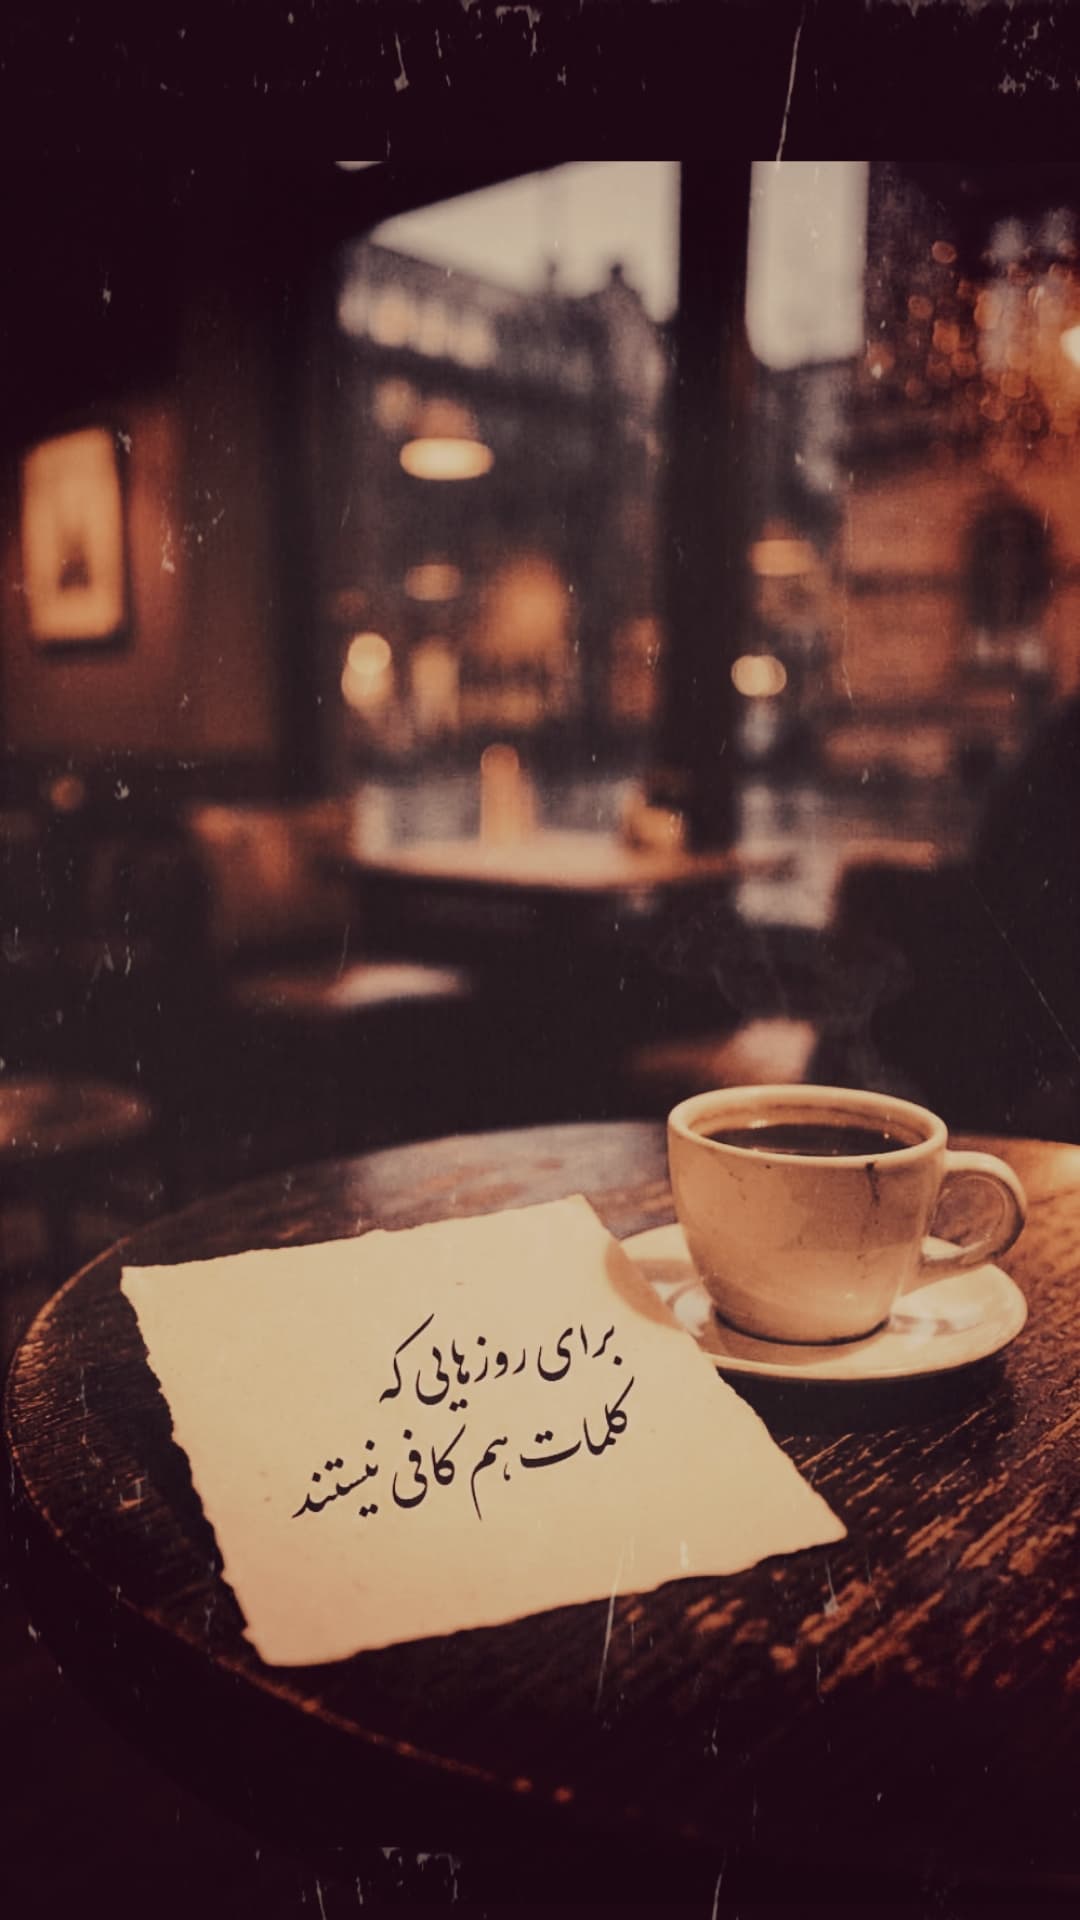 برای روزهایی که
کلمات هم کافی نیستند